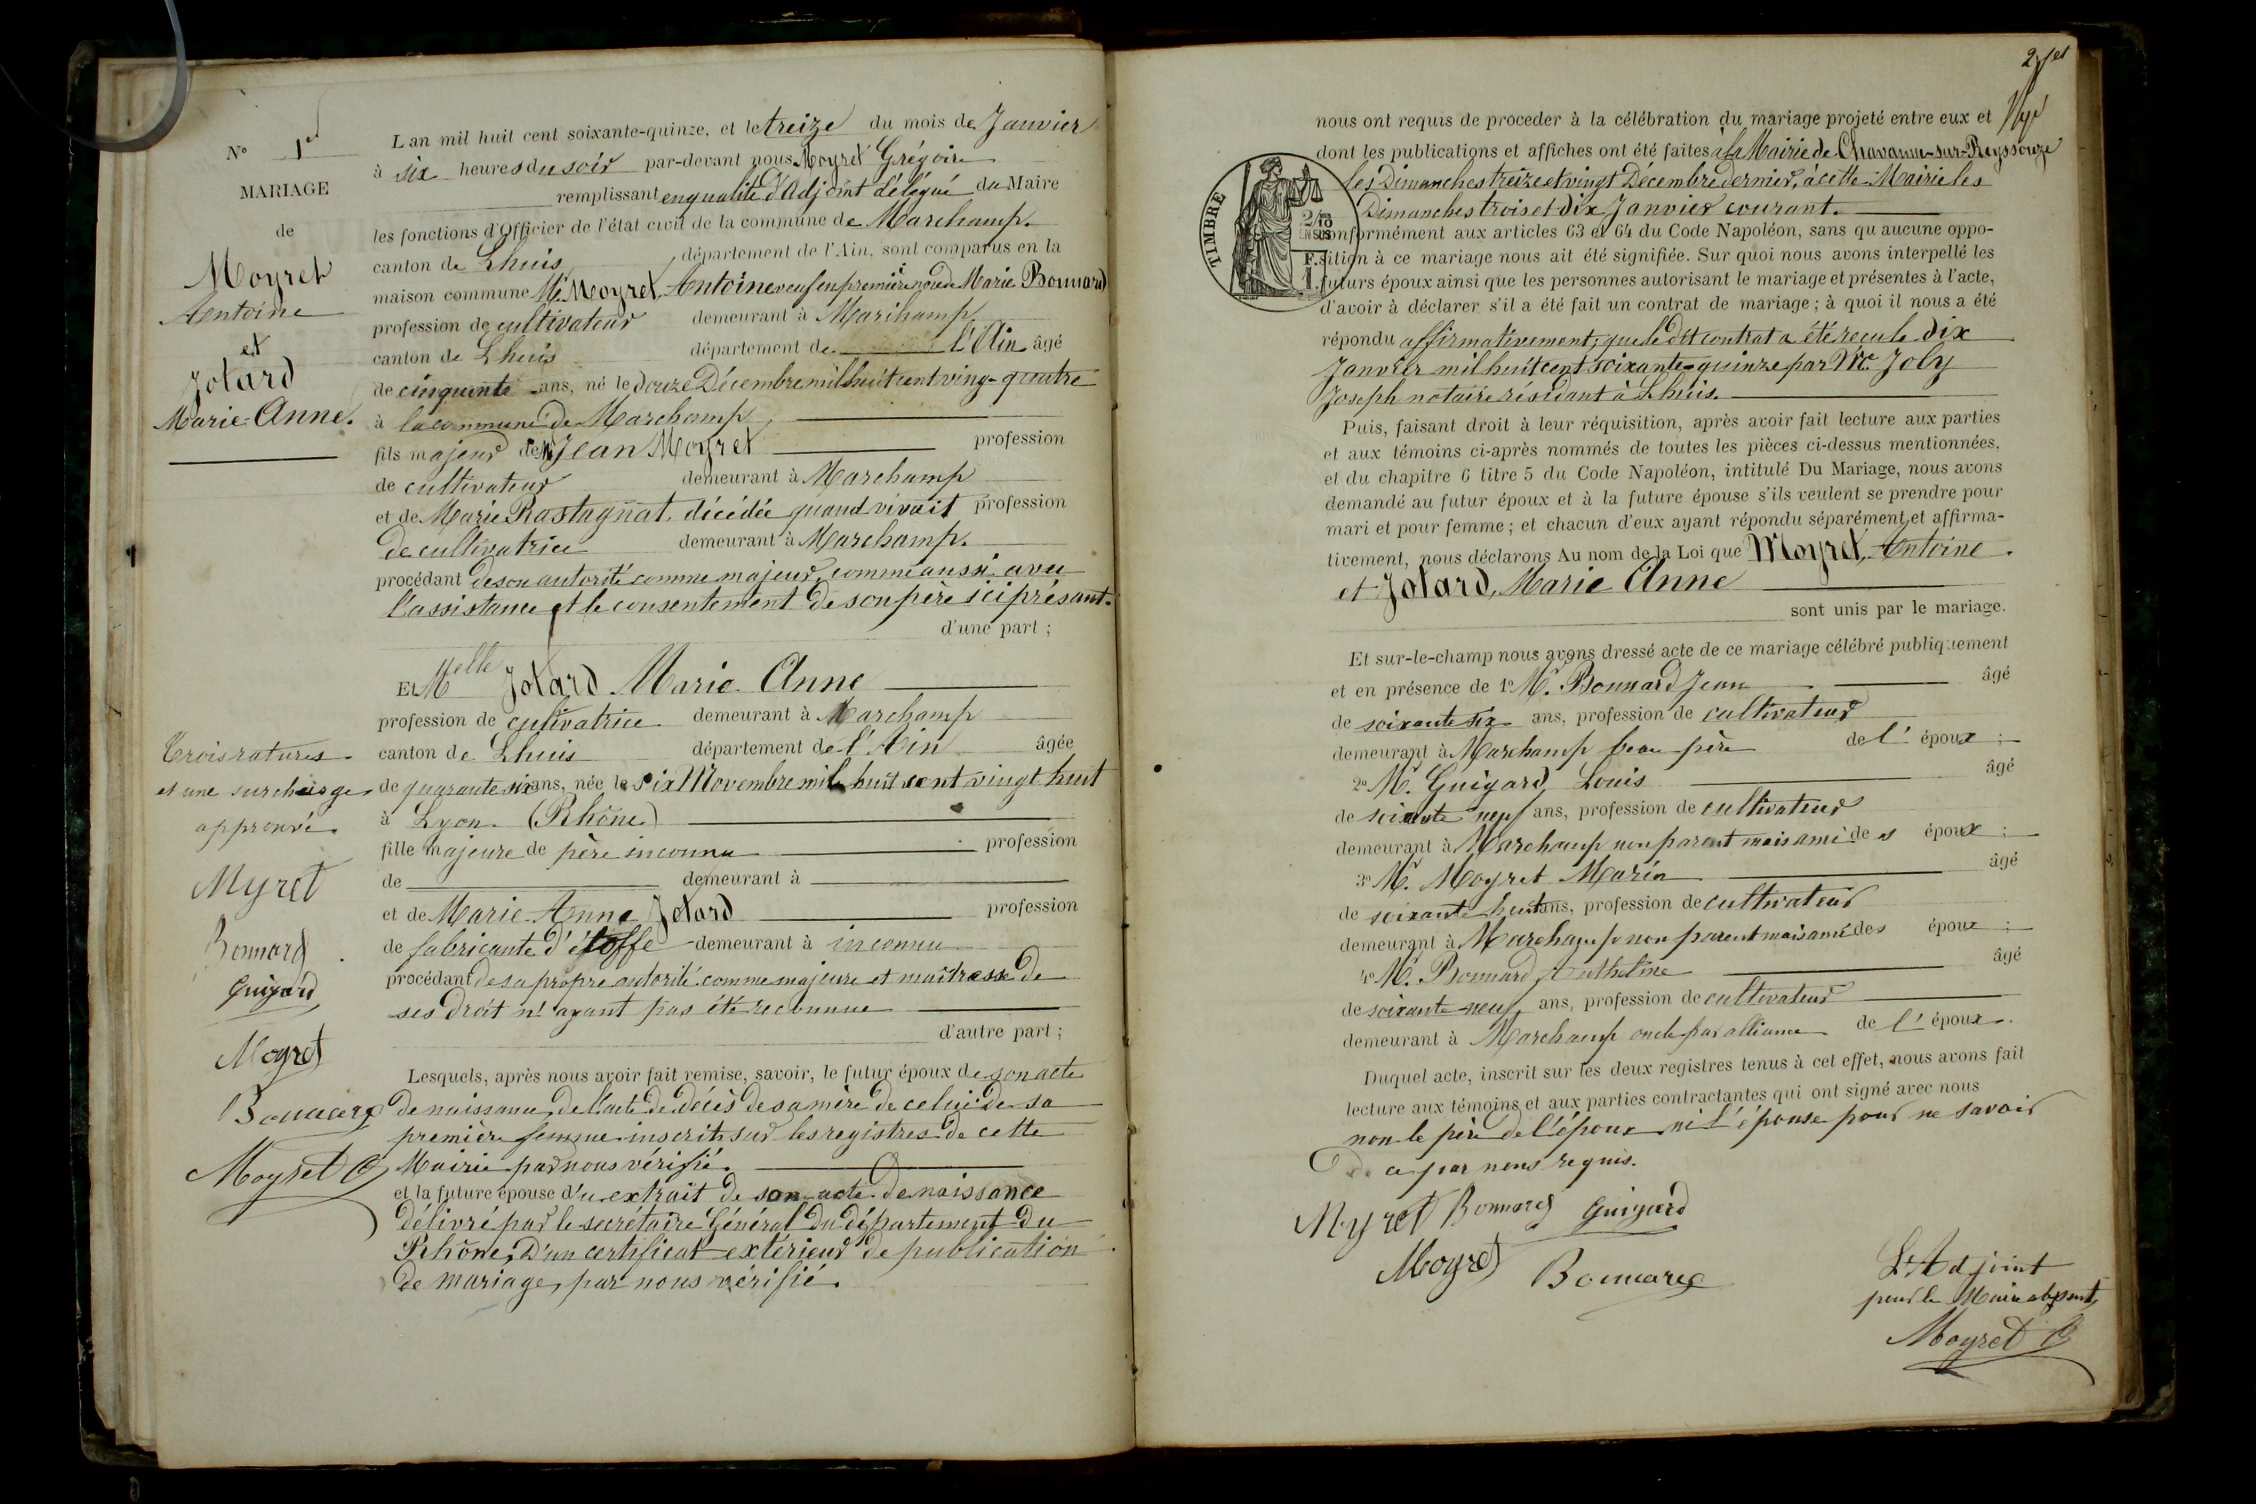 N° 1er
MARIAGE
de
Moyret
Antoine
et
Jotard
Marie-Anne.
Trois ratures
et une surcharge
approuvé.
Myret
Bonnard
Guigard
Moyret
Bonnard
Moyret G
L'an mil huit cent soixante-quinze, et le treize du mois de Janvier
à six heures du soir par-devant nous Moyret Grégoire
remplissant en qualité d'Adjoint délégué du Maire
les fonctions d'Officier de l'état civil de la commune de Marchamp.
canton de Lhuis, département de l'Ain, sont comparus en la
maison commune Mr. Moyret, Antoine veuf en première noce de Marie Bonnard
profession de cultivateur demeurant à Marchamp
canton de Lhuis département de l'Ain âgé
de cinquante ans, né le douze Décembre mil huit cent ving-quatre
à la commune de Marchamp,
fils majeur de Mr Jean Moyret profession
de cultivateur demeurant à Marchamp
et de Marie Rastagnat, décédée quand vivait profession
de cultivatrice demeurant à Marchamp.
procédant de son autorité comme majeur, comme aussi avec
l'assistance et le consentement de son père ici présant.
d'une part ;
Et Melle Jotard Marie Anne
profession de cultivatrice demeurant à Marchamp
canton de Lhuis département de l'Ain âgée
de quarante six ans, née le six Novembre mil huit cent vingt huit
à Lyon. (Rhône)
fille majeure de père inconnu profession
de demeurant à
et de Marie-Anne Jotard profession
de fabricante d'étoffe demeurant à inconnu
procédant de sa propre autorité comme majeure et maîtresse de
ses droit n'ayant pas été reconnue
d'autre part ;
Lesquels, après nous avoir fait remise, savoir, le futur époux de son acte
de naissance, de l'acte de décès de sa mère de celui de sa
première femme inscrits sur les registres de cette
Mairie par nous vérifié.
et la future épouse d'un extrait de son acte de naissance
délivré par le secrétaire Général du département du
Rhône, d'un certificat extérieur de publication
de mariage, par nous vérifié.
nous ont requis de procéder à la célébration du mariage projeté entre eux et
dont les publications et affiches ont été faites à la Mairie de Chavanne-sur-Reyssouze
les Dimanches treize et vingt Décembre dernier, à cette Mairie les
Dimanches trois et dix Janvier courant.
TIMBRE
conformément aux articles 63 et 64 du Code Napoléon, sans qu'aucune oppo-
sition à ce mariage nous ait été signifiée. Sur quoi nous avons interpellé les
futurs époux ainsi que les personnes autorisant le mariage et présentes à l'acte,
d'avoir à déclarer s'il a été fait un contrat de mariage ; à quoi il nous a été
répondu affirmativement, que le dit contrat a été recu le dix
Janvier mil huit cent soixante-quinze par Me. Joly
Joseph notaire résidant à Lhuis.
Puis, faisant droit à leur réquisition, après avoir fait lecture aux parties
et aux témoins ci-après nommés de toutes les pièces ci-dessus mentionnées,
et du chapitre 6 titre 5 du Code Napoléon, intitulé Du Mariage, nous avons
demandé au futur époux et à la future épouse s'ils veulent se prendre pour
mari et pour femme ; et chacun d'eux ayant répondu séparément et affirma-
tivement, nous déclarons Au nom de la Loi que Moyret, Antoine.
et Jotard, Marie Anne
sont unis par le mariage.
Et sur-le-champ nous avons dressé acte de ce mariage célébré publiquement
et en présence de 1° Mr. Bonnard Jean âgé
de soixante six ans, profession de cultivateur
demeurant à Marchamp beau père de l' époux ;
2° Mr. Guigard Louis âgé
de soixante neuf ans, profession de cultivateur
demeurant à Marchamp non parent mais ami de s époux ;
3° Mr. Moyret Marin âgé
de soixante huit ans, profession de cultivateur
demeurant à Marchamp non parent mais ami des époux ;
4° Mr. Bonnard Anthelme âgé
de soixante neuf ans, profession de cultivateur
demeurant à Marchamp oncle par alliance de l' époux.
Duquel acte, inscrit sur les deux registres tenus à cet effet, nous avons fait
lecture aux témoins et aux parties contractantes qui ont signé avec nous
non le père de l'époux ni l'épouse pour ne savoir
de ce par nous requis.
Myret Bonnard Guigard
Moyret Bonnard
L'Adjoint
pour le Maire absent,
Moyret G